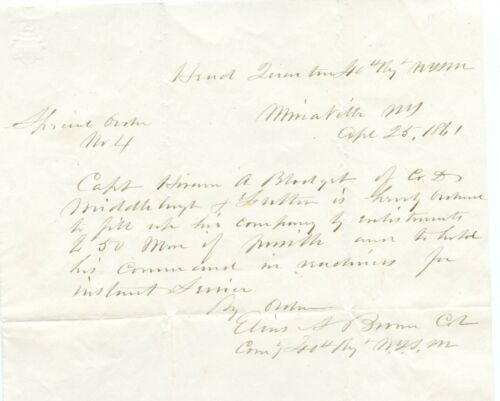 Head Quarters 40th Regt NYSM
Minaville NY
Apl 25, 1861
Special Order
No 4
Capt Hiram A Blodget of Co D
Middleburgh & Fulton is hereby ordered
to fill up his company by enlistments
to 50 Men if possible and to hold
his command in readiness for
instant Service
By Order
Elias A Brown Col
Comg 40th Regt N.Y.S.M